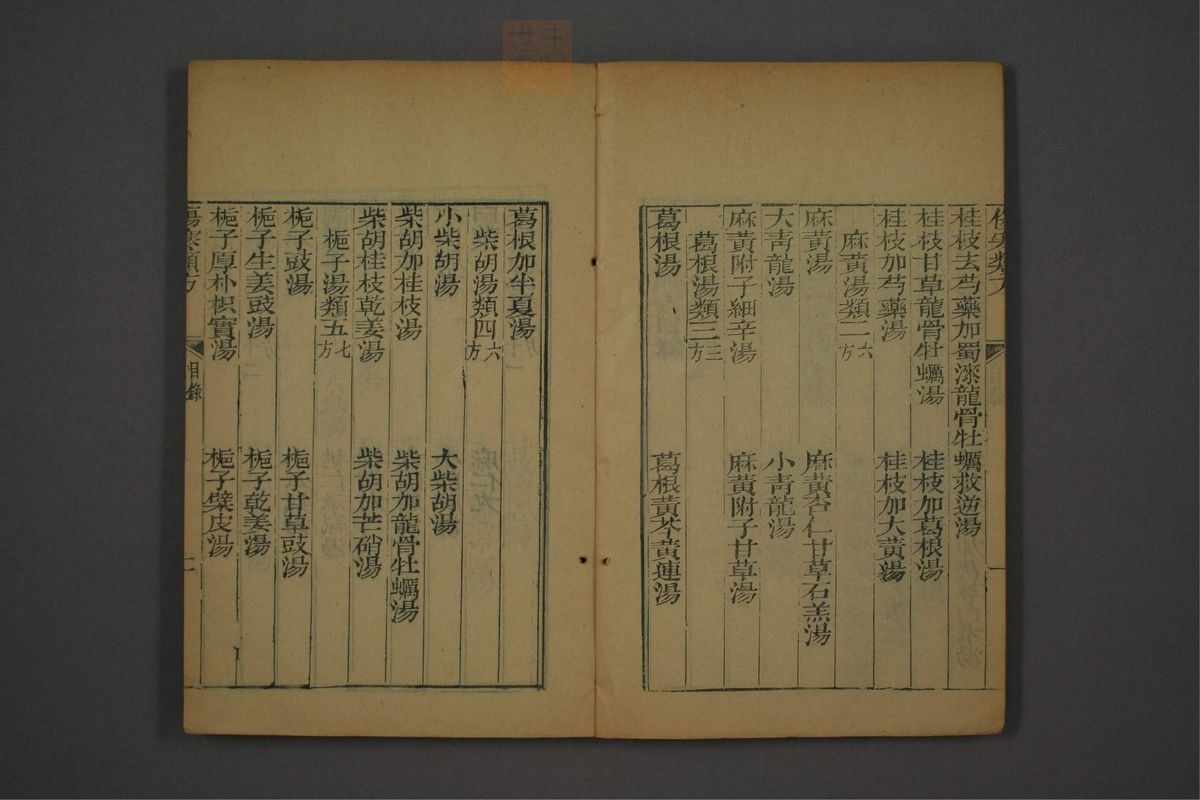 桂枝去芍藥加蜀漆龍骨牡蠣救逆湯
桂枝甘草龍骨牡蠣湯 桂枝加葛根湯
桂枝加芍藥湯 桂枝加大黃湯
麻黃湯類二 六方
麻黃湯 麻黃杏仁甘草石羔湯
大靑龍湯 小靑龍湯
麻黃附子細辛湯 麻黃附子甘草湯
葛根湯類三 三方
葛根湯 葛根黃芩黃連湯
葛根加半夏湯
柴胡湯類四 六方
小柴胡湯 大柴胡湯
柴胡加桂枝湯 柴胡加龍骨牡蠣湯
柴胡桂枝乾姜湯 柴胡加芒硝湯
梔子湯類五 七方
梔子豉湯 梔子甘草豉湯
梔子生姜豉湯 梔子乾姜湯
梔子厚朴枳實湯 梔子檗皮湯
傷寒類方 目錄 二